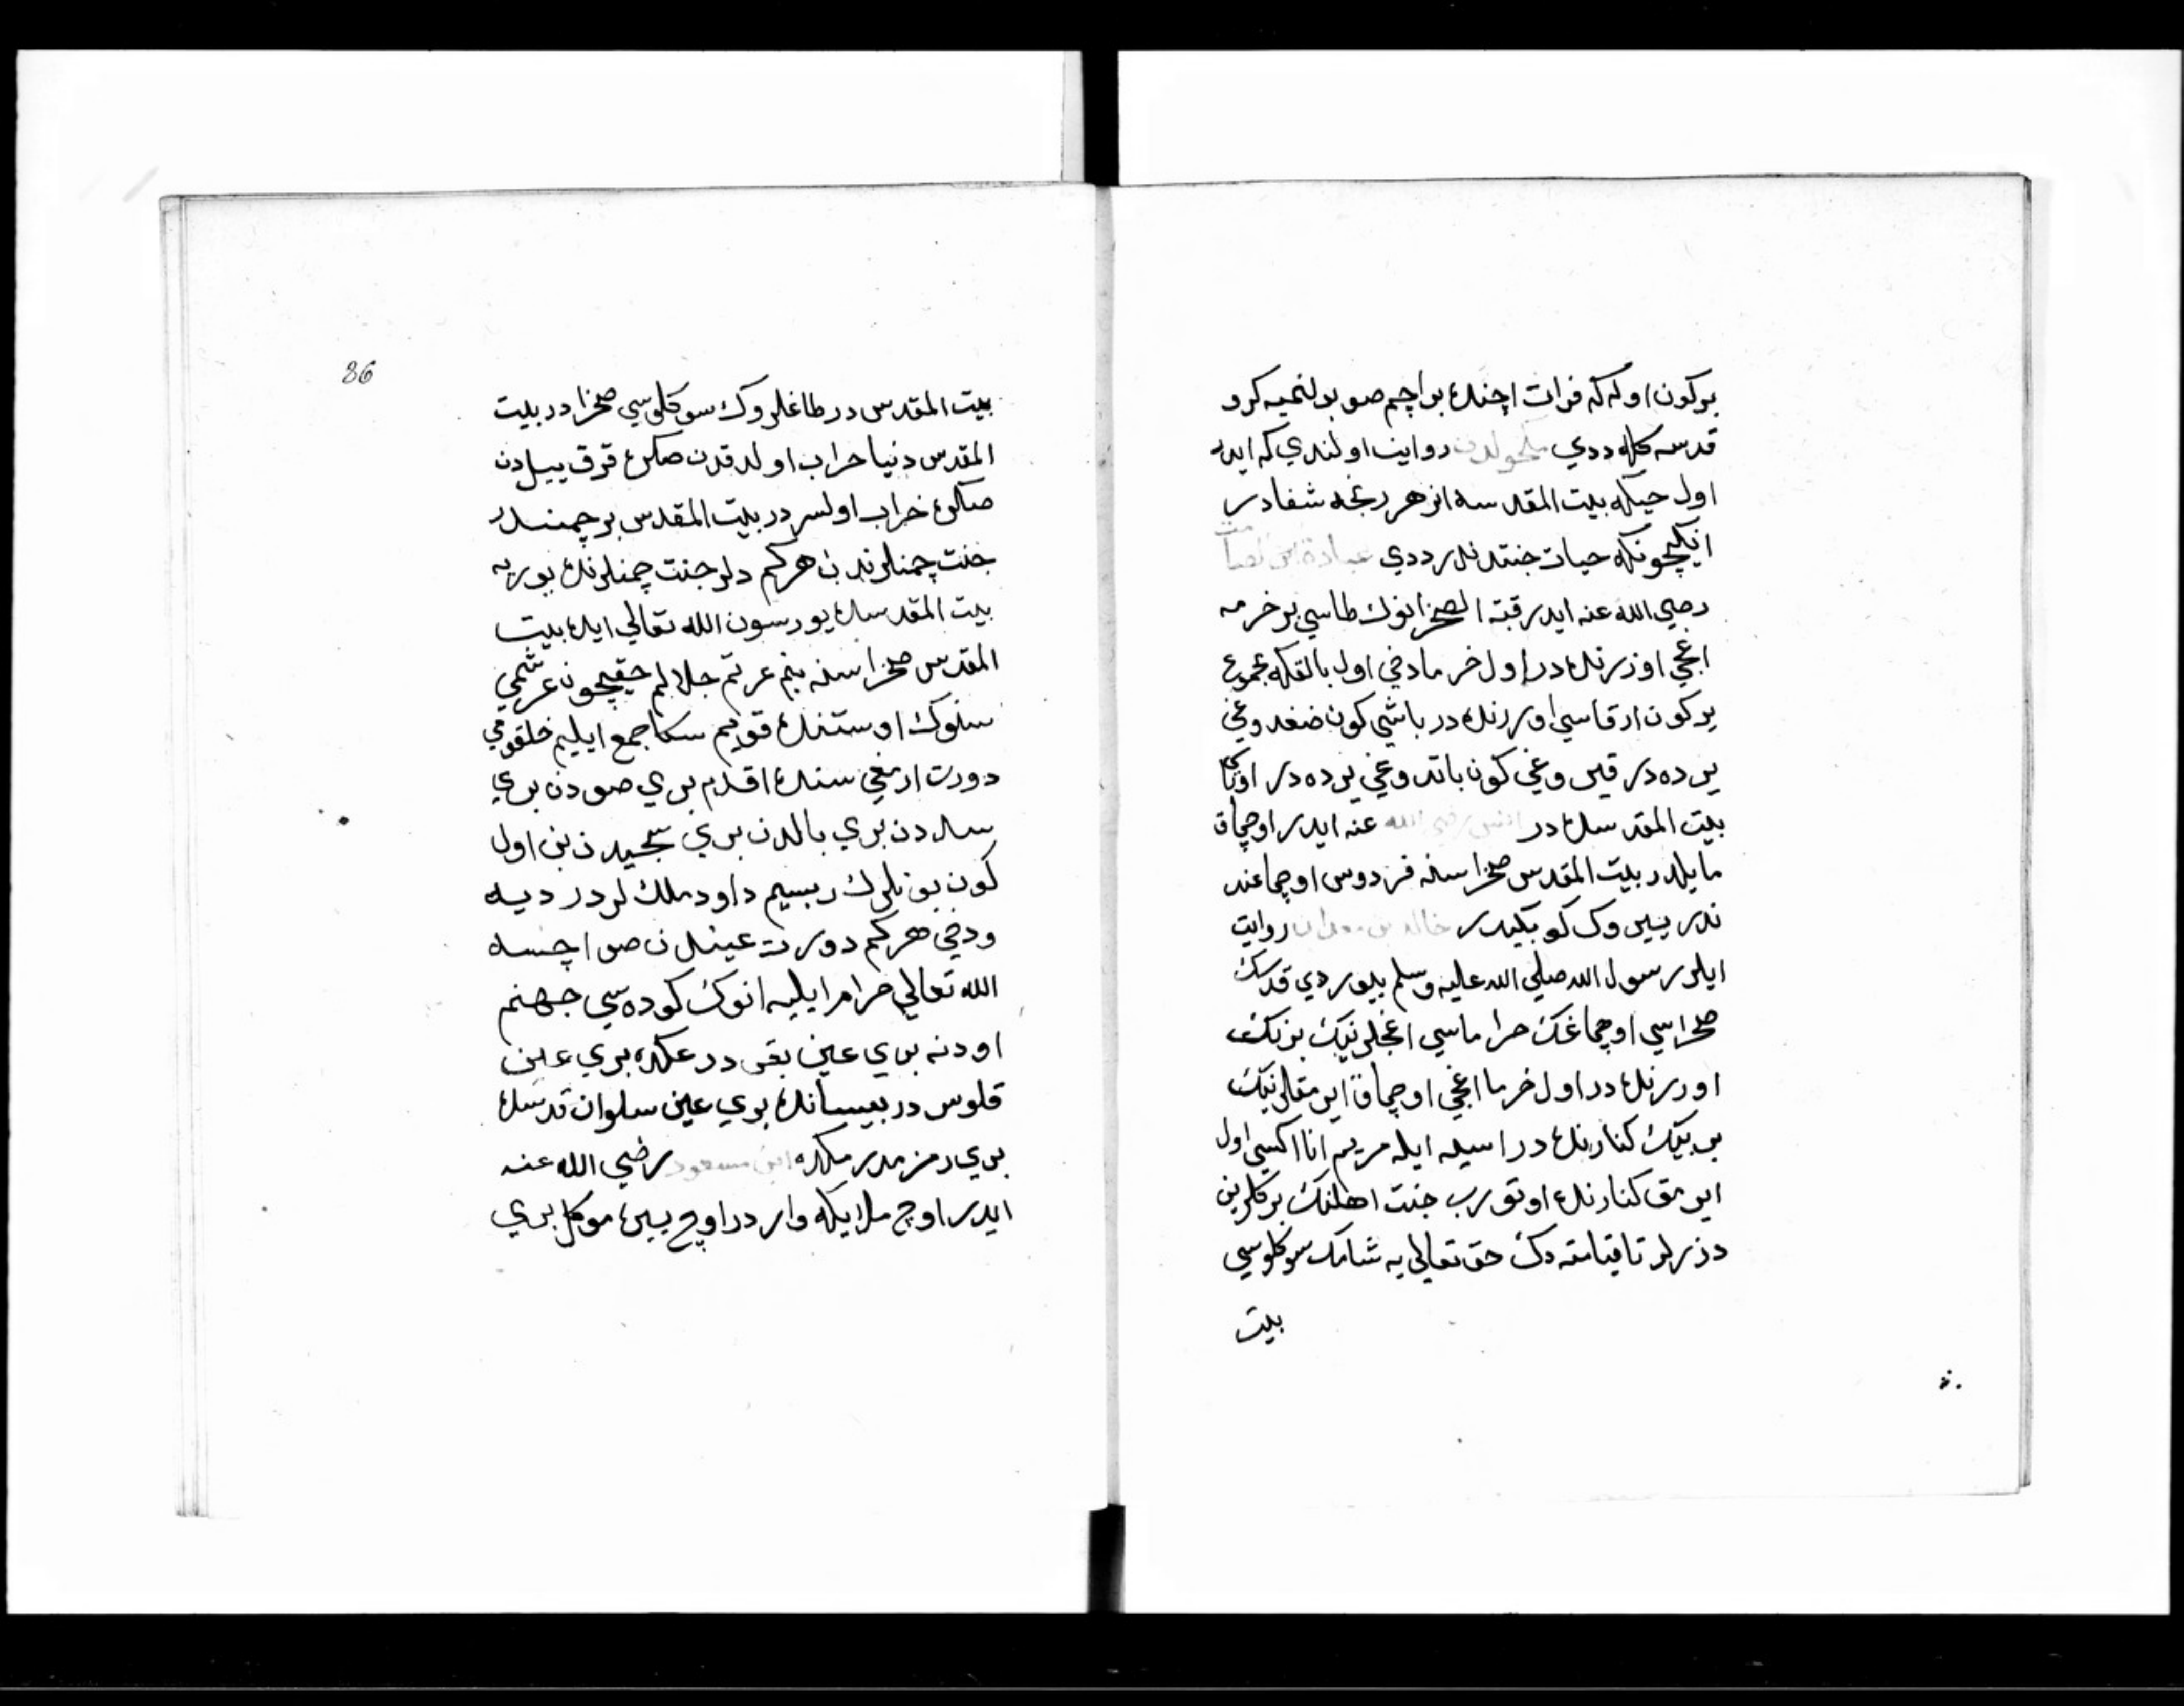 بركون اوله که فرات اچنده بر اچم صو بولنميه کرو
قدسه کله ددي مکحولدن روايت اولندي که ايدر
اول حيله بيت المقدسده انز هر رنجه شفادر
انکيچونکه حيات جنتدندر ددي عبادة بن لصامت
رضي الله عنه ايدر قبته الصخرانوك طاسي بر خرمه
اغجي اوزرنده در اول خرما دخي اول بالقکه مجموع
ير کون ارقاسي اوررنده در باشي کون ضغدوغي
يرده در قيرروغي کون باتدوغي يرده در اورتا
بيت المقدسده در انس رضي الله عنه ايدر اوچماق
مايلدر بيت المقدس صخراسنه فردوس اوچماغند
ندر يير وک کوبکيدر خالد بن معدان روايت
ايلر رسول الله صلي الله عليه وسلم بيوردي قدسك
صخراسي اوچماغك خرماسي اغجلرينك بزنك
اوررنده در اول خرما اغجي اوچماق ايرمقلرينك
بر بينك کنارنده در اسيه ايله مريم انا اکيسي اول
ايرمق کنارنده اوتورب جنت اهلنك برکلرين
دزرلر تا قيامته دك حق تعالي يه شامك سوکلوسي
بيت
86
بيت المقدس در طاغلروك سوکلوسي صخرا در بيت
المقدس دنيا خراب اولدقدن صکره قرق ييلدن
صکره خراب اولسر در بيت المقدس بر چمندر
جنت چمنلرندن هرکم دلر جنت چمنلرنده يوريه
بيت المقدسده يورسون الله تعالي ايده بيت
المقدس صخراسنه بنم عزتم جلالم حقيچون عرشمي
سنوك اوستنده قويم سکا جمع ايليم خلقومي
دورت ارمغي سنده اقدم بري صودن بري
سددن بري بالدن بري سجيدن بن اول
کون بونلرك ربسيم داود ملك لردر ديه
ودخي هرکم دورت عيندن صو اچسه
الله تعالي حرام ايليه انوك کوده سي جهنم
اودنه بري عين بقر در عکده بري عين
قلوس در بيسانده بري عين سلوان قدسده
بري زمزمدر مکده ابن مسعود رضي الله عنه
ايدر اوچ ملايکه واردر اوچ ييره موکل بري